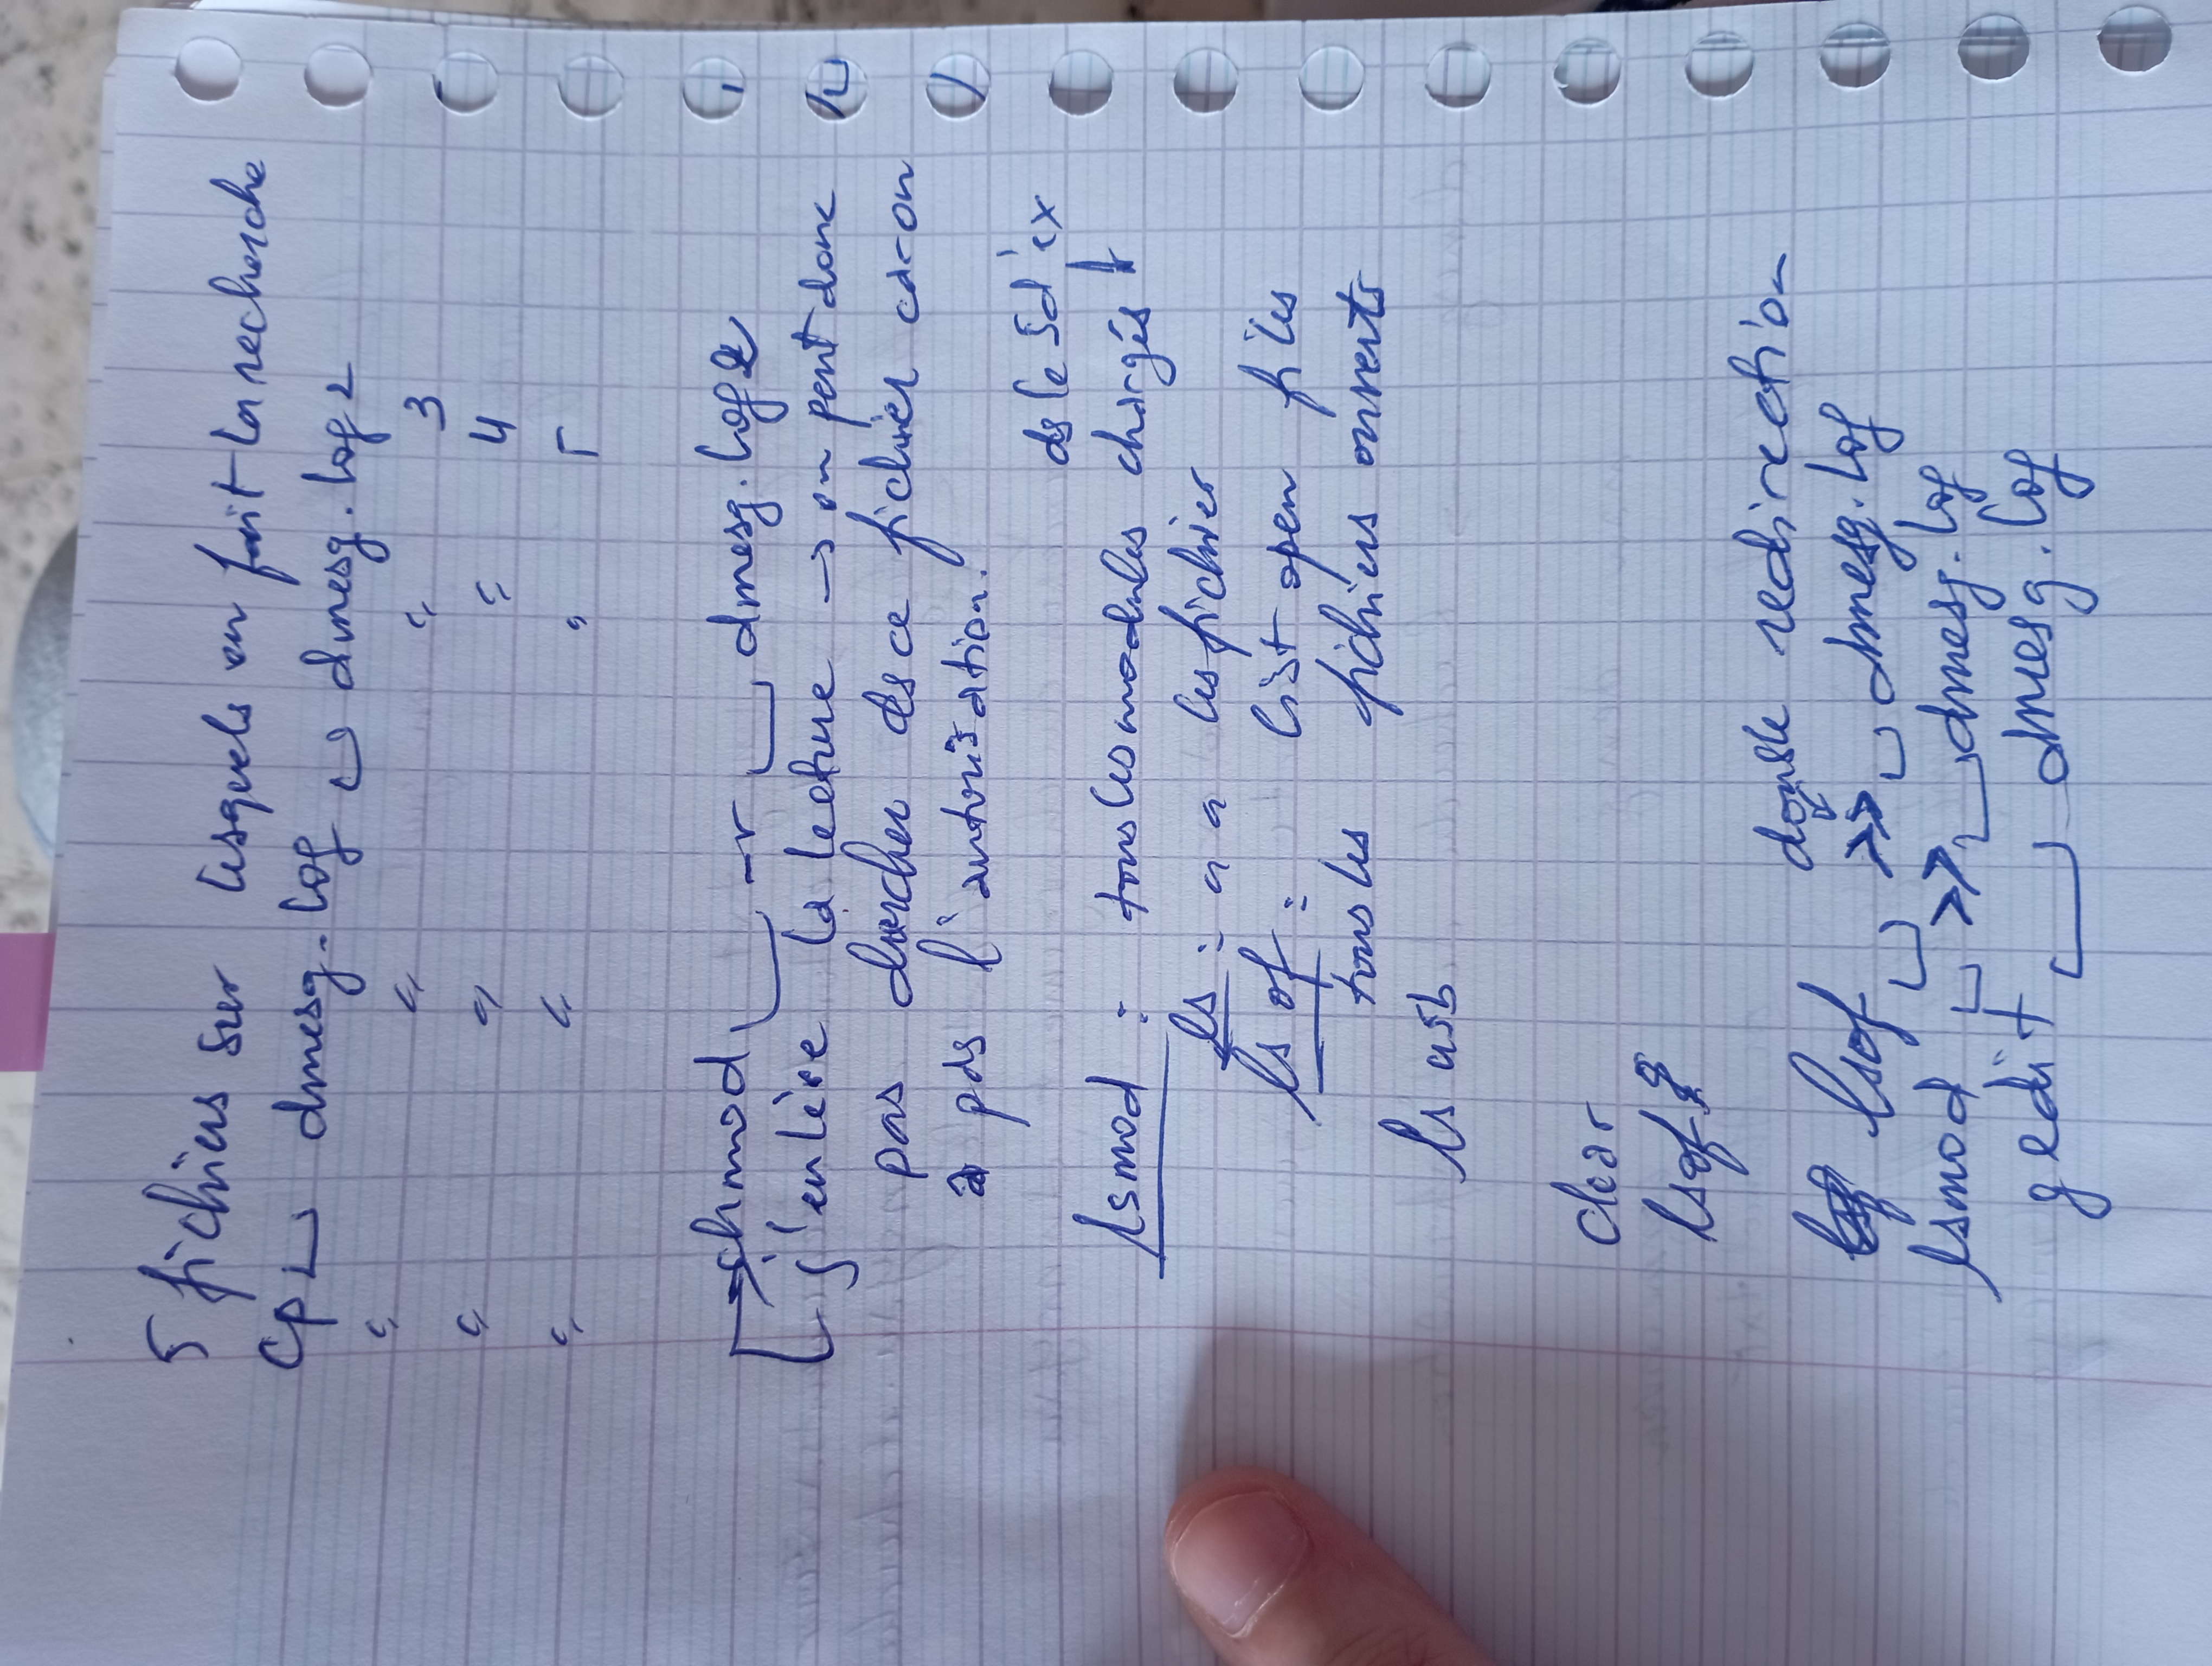 5 fichiers sur lesquels on fait la recherche
cp ␣ dmesg.log ␣ dmesg.log2
" " " 3
" " " 4
" " " 5
chmod ␣ -r ␣ dmesg.log2
j'enlève la lecture → on peut donc
pas chercher ds ce fichier car on
a pas l'autorisation.
ds le sd'ex
lsmod : tous les modules chargés
ls : " " les fichier
ls of : list open files
tous les fichiers ouverts
ls usb
clear
lsof
double redirection
lsof ␣ >> ␣ dmesg.log
lsmod ␣ >> ␣ dmesg.log
gedit ␣ dmesg.log